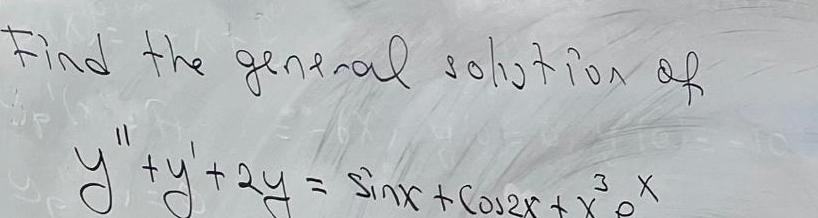 Find the general solution of
y'' + y' + 2y = sinx + cos2x + x³ e^x